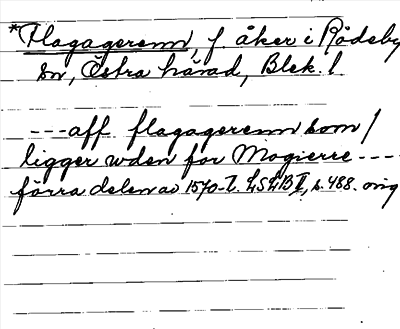 *Flagagerenn, f. åker i Rödeby
sn, Östra härad, Blek. /
---aff flagagerenn som /
ligger wden for Mogierre ----
förra delen av 1570-t. LSLB II, s. 488. orig